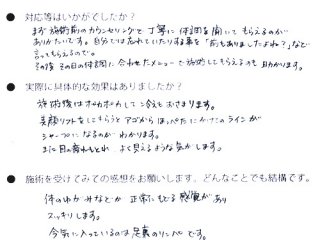 ● 対応等はいかがでしたか？
まず施術前のカウンセリングで丁寧に体調を聞いてもらえるのが
ありがたいです。自分では忘れていたりする事を「前もありましたよね？」など
言ってもらえるので。
その後その日の体調に合わせたメニューで施術してもらえるのも助かります。
● 実際に具体的な効果はありましたか？
施術後はポカポカして冷えもおさまります。
美顔リフトをしてもらうとアゴからほっぺたにかけてのラインが
シャープになるのがわかります。
まに目の疲れもとれ、よく見えるような気がします。
● 施術を受けてみての感想をお願いします。どんなことでも結構です。
体のゆがみなどが正常にもどる感覚があり
スッキリします。
今気に入っているのは足裏のリンパです。